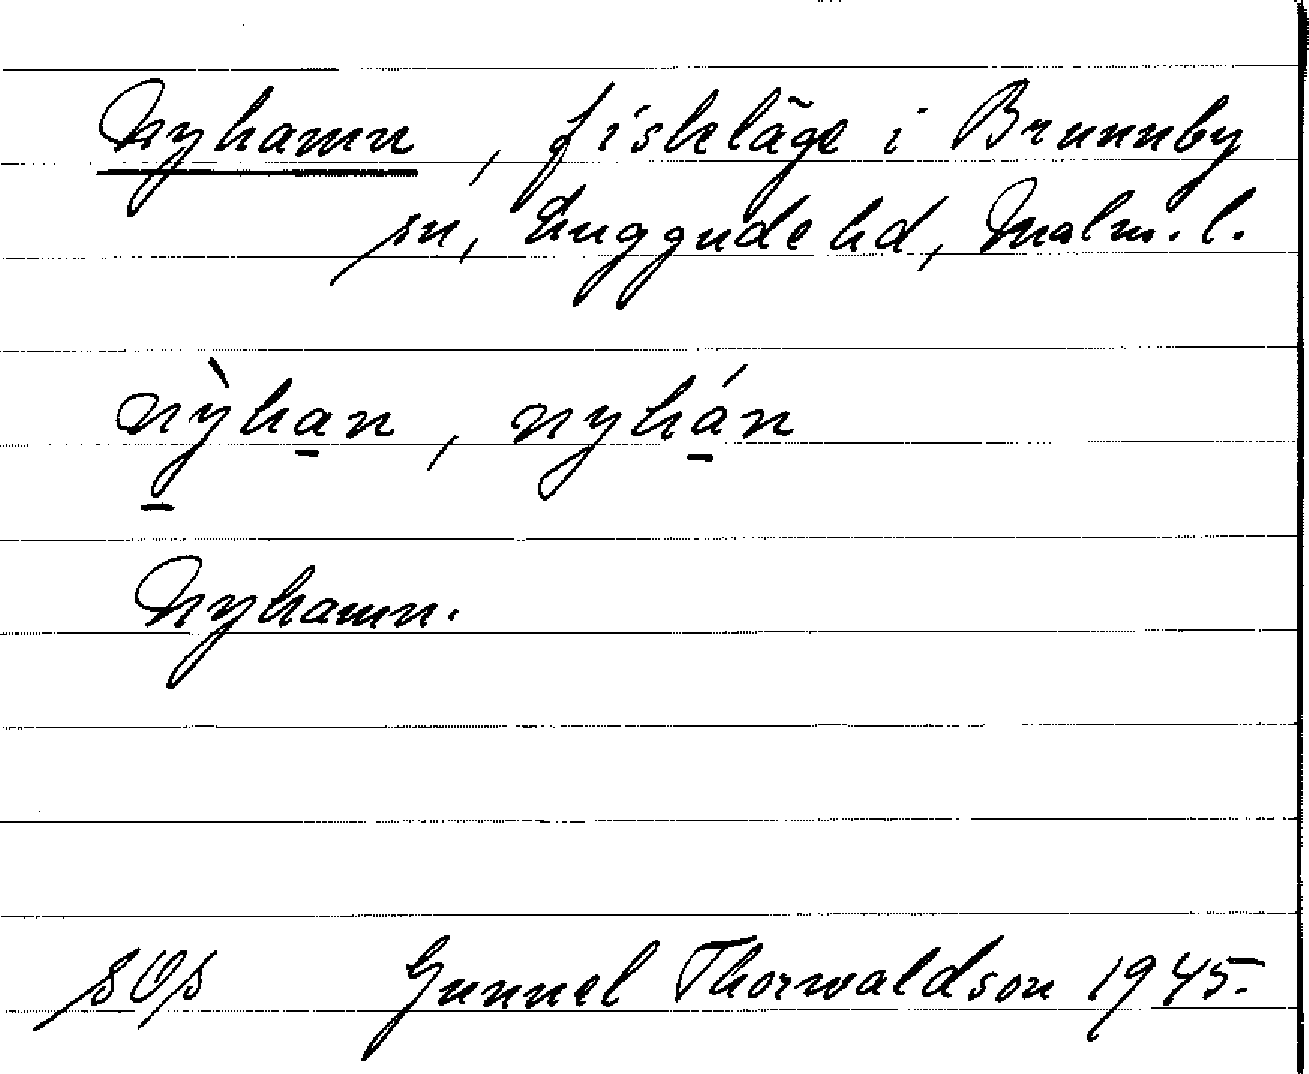 Nyhamn, fiskeläge i Brunnby
sn, Luggude hd, Malm. l.
nỳhan, nyhán
Nyhamn.
SOS Gunnel Thorwaldson 1945.